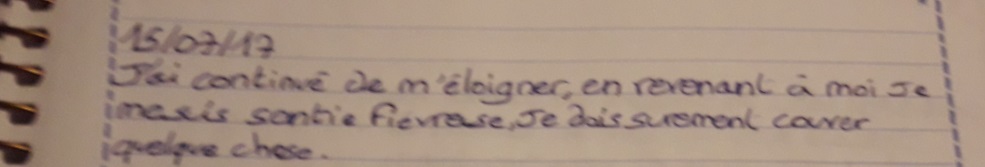 15/07/17
J'ai continué de m'éloigner, en revenant à moi Je
me suis sentie fievreuse, Je dois surement couver
quelque chose.